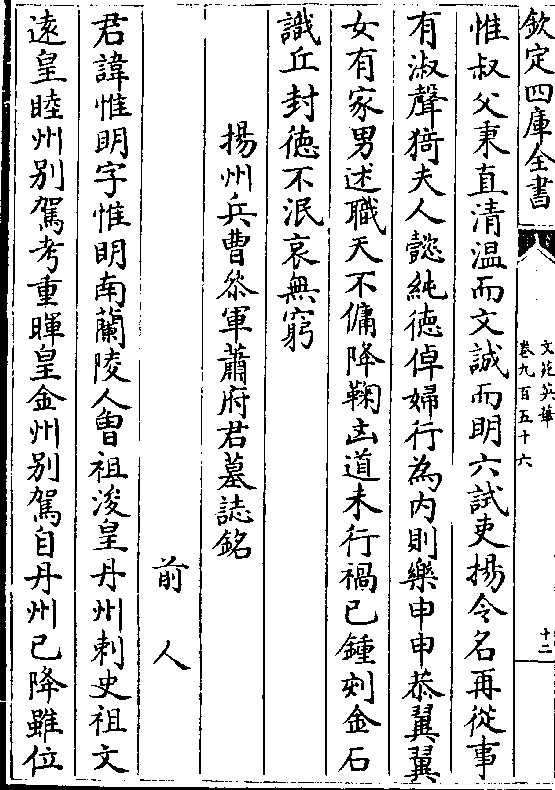 欽定四庫全書
文苑英華
卷九百五十六
十二
惟叔父秉直清溫而文誠而明六試吏揚令名再從事
有淑聲猗夫人懿純徳倬婦行為内則樂申申恭翼翼
女有家男述職天不傭降鞠凶道未行禍已鍾刻金石
識丘封徳不泯哀無窮
揚州兵曹叅軍蕭府君墓誌銘
前人
君諱惟明字惟明南蘭陵人曾祖浚皇丹州刺史祖文
逺皇睦州别駕考重暉皇金州别駕自丹州已降雖位